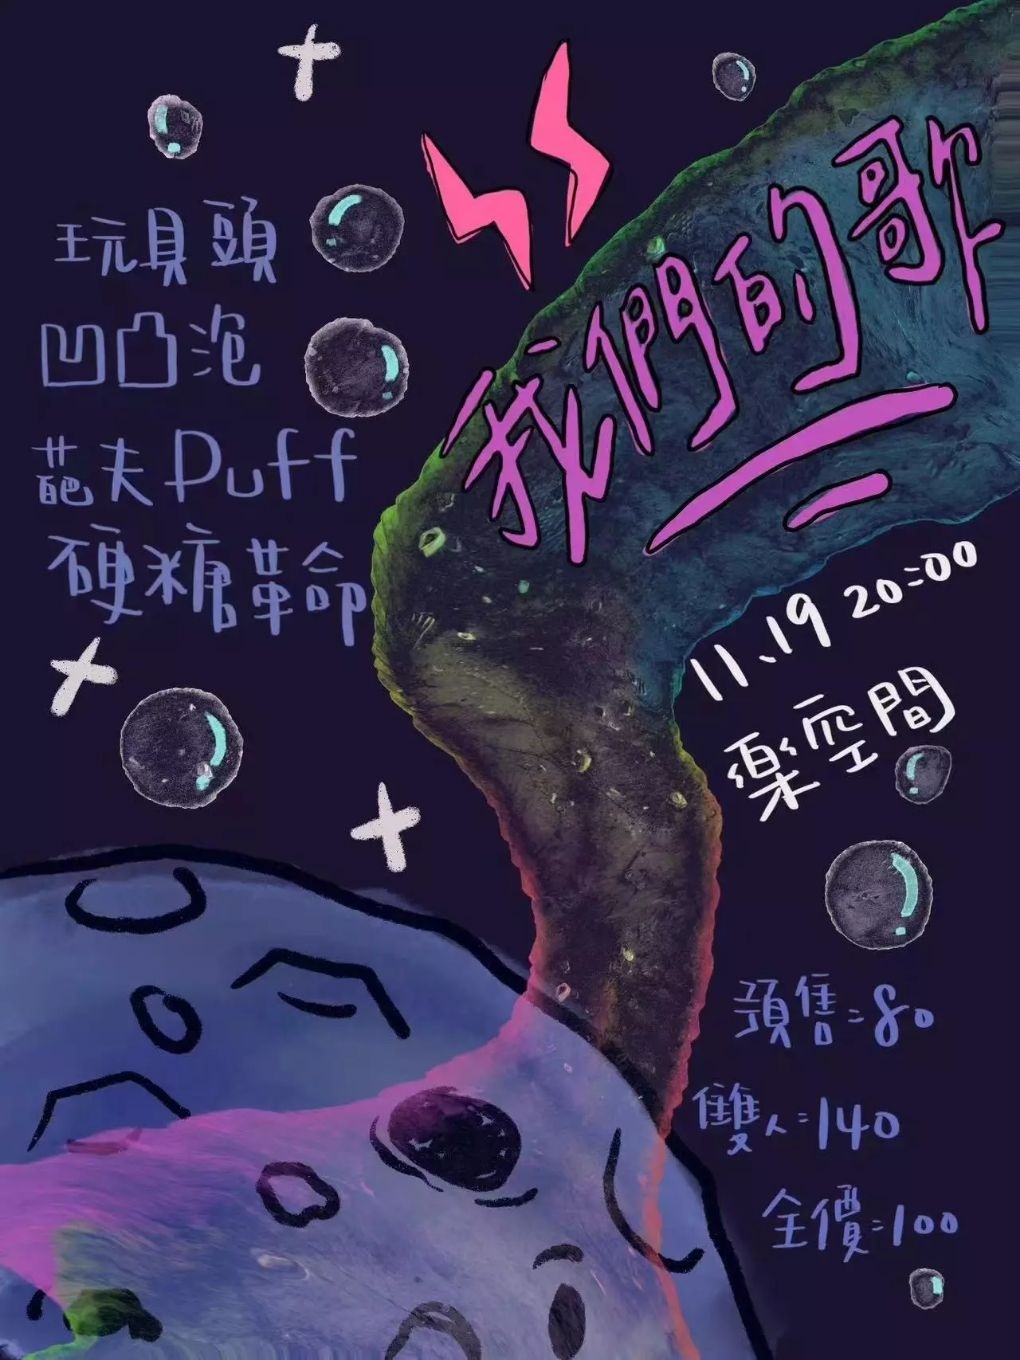 我們的歌
玩具頭
凹凸泡
葩夫Puff
硬糖革命
11、19 20:00
樂空間
預售:80
雙人:140
全價:100